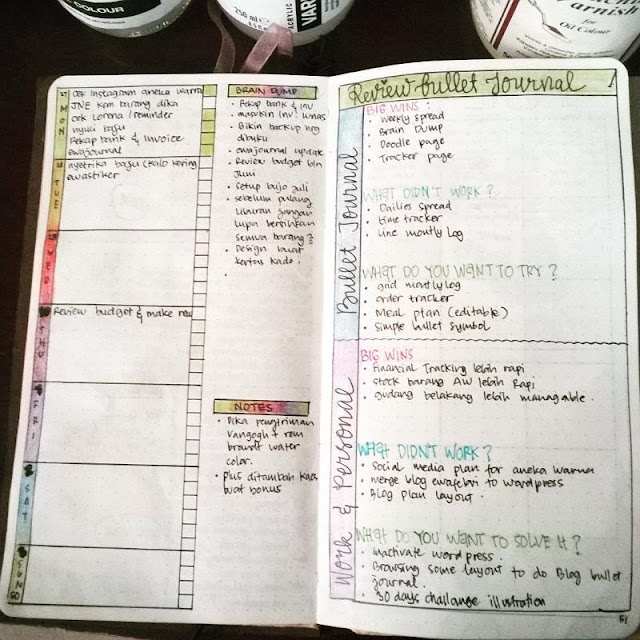 COLOUR
250 ml
ACRYLIC
VAR
Varnish
for
Oil Colour
MON
cek Instagram aneka warna
JNE krm barang dika
cek Lorena / reminder
nyuci baju
Rekap bank & Invoice
ewajournal
TUE
nyetrika baju (kalo kering
ewastiker
WED
THU
Review budget & make new
FRI
SAT
SUN
30
BRAIN DUMP
• Rekap bank & inv
• masukin inv. lunas
• Bikin backup ling
dibuku
• ewajournal update
• Review budget bln
Juni
• Setup bujo juli
• sebelum pulang
liburan jangan
lupa bersihkan
semua barang2
• Design buat
kertas kado!
NOTES
• Dika pengiriman
Vangogh + rem
brandt water
color.
• plus ditambah kaos
buat bonus
Review bullet Journal
Bullet Journal
BIG WINS :
• Weekly spread
• Brain Dump
• Doodle page
• Tracker page
WHAT DIDN'T WORK ?
• Dailies spread
• time tracker
• Line montly log
WHAT DO YOU WANT TO TRY ?
• grid montly log
• order tracker
• Meal plan (editable)
• Simple bullet symbol
Work & Personal
BIG WINS
• Financial Tracking lebih rapi
• Stock barang AW lebih Rapi
• Gudang belakang lebih managable.
WHAT DIDN'T WORK ?
• Social media plan for aneka warna
• merge blog ewafebri to wordpress
• Blog plan layout.
WHAT DO YOU WANT TO SOLVE IT ?
• inactivate wordpress.
• Browsing some layout to do Blog bullet
journal.
• 30 days challange illustration
51